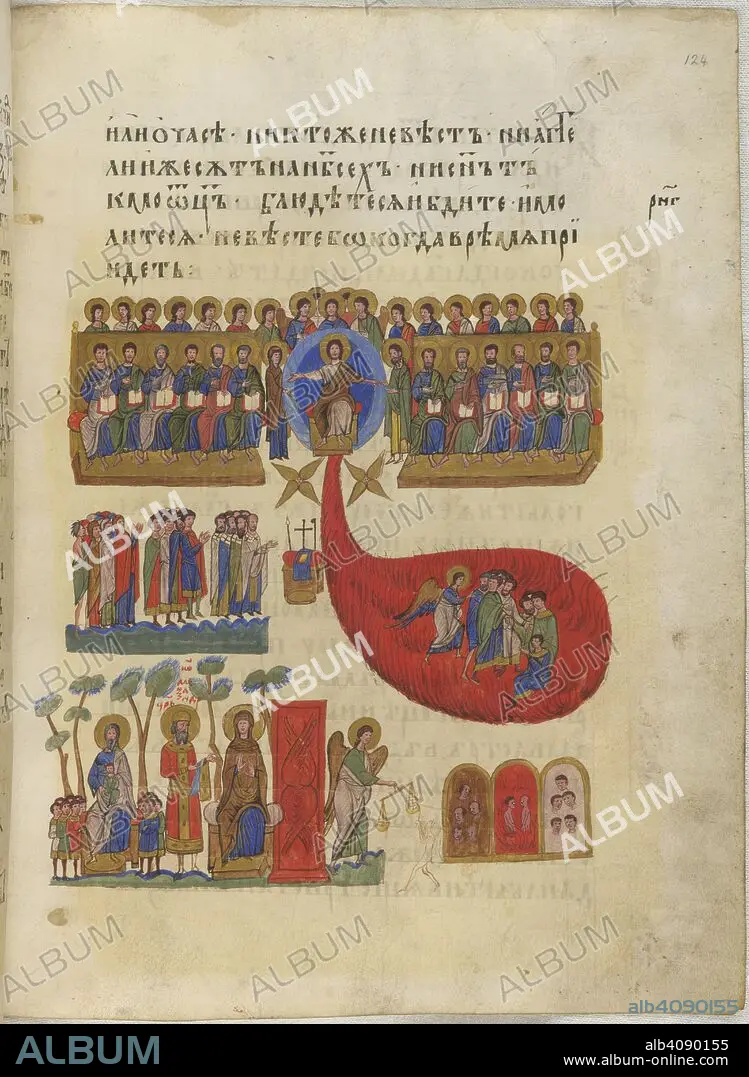 124
или о часѣ · никтоже не вѣстъ · ни агг҃ле
ли иже сѫтъ на нб҃сехъ · ни сн҃ъ тъ
кмо ѿц҃ъ · блюдѣтеся и бдите · и мо
литеся · не вѣсте бо когда врѣмя прі
идетъ :
ALBUM
alb4090155
ALBUM
alb4090155
www.album-online.com